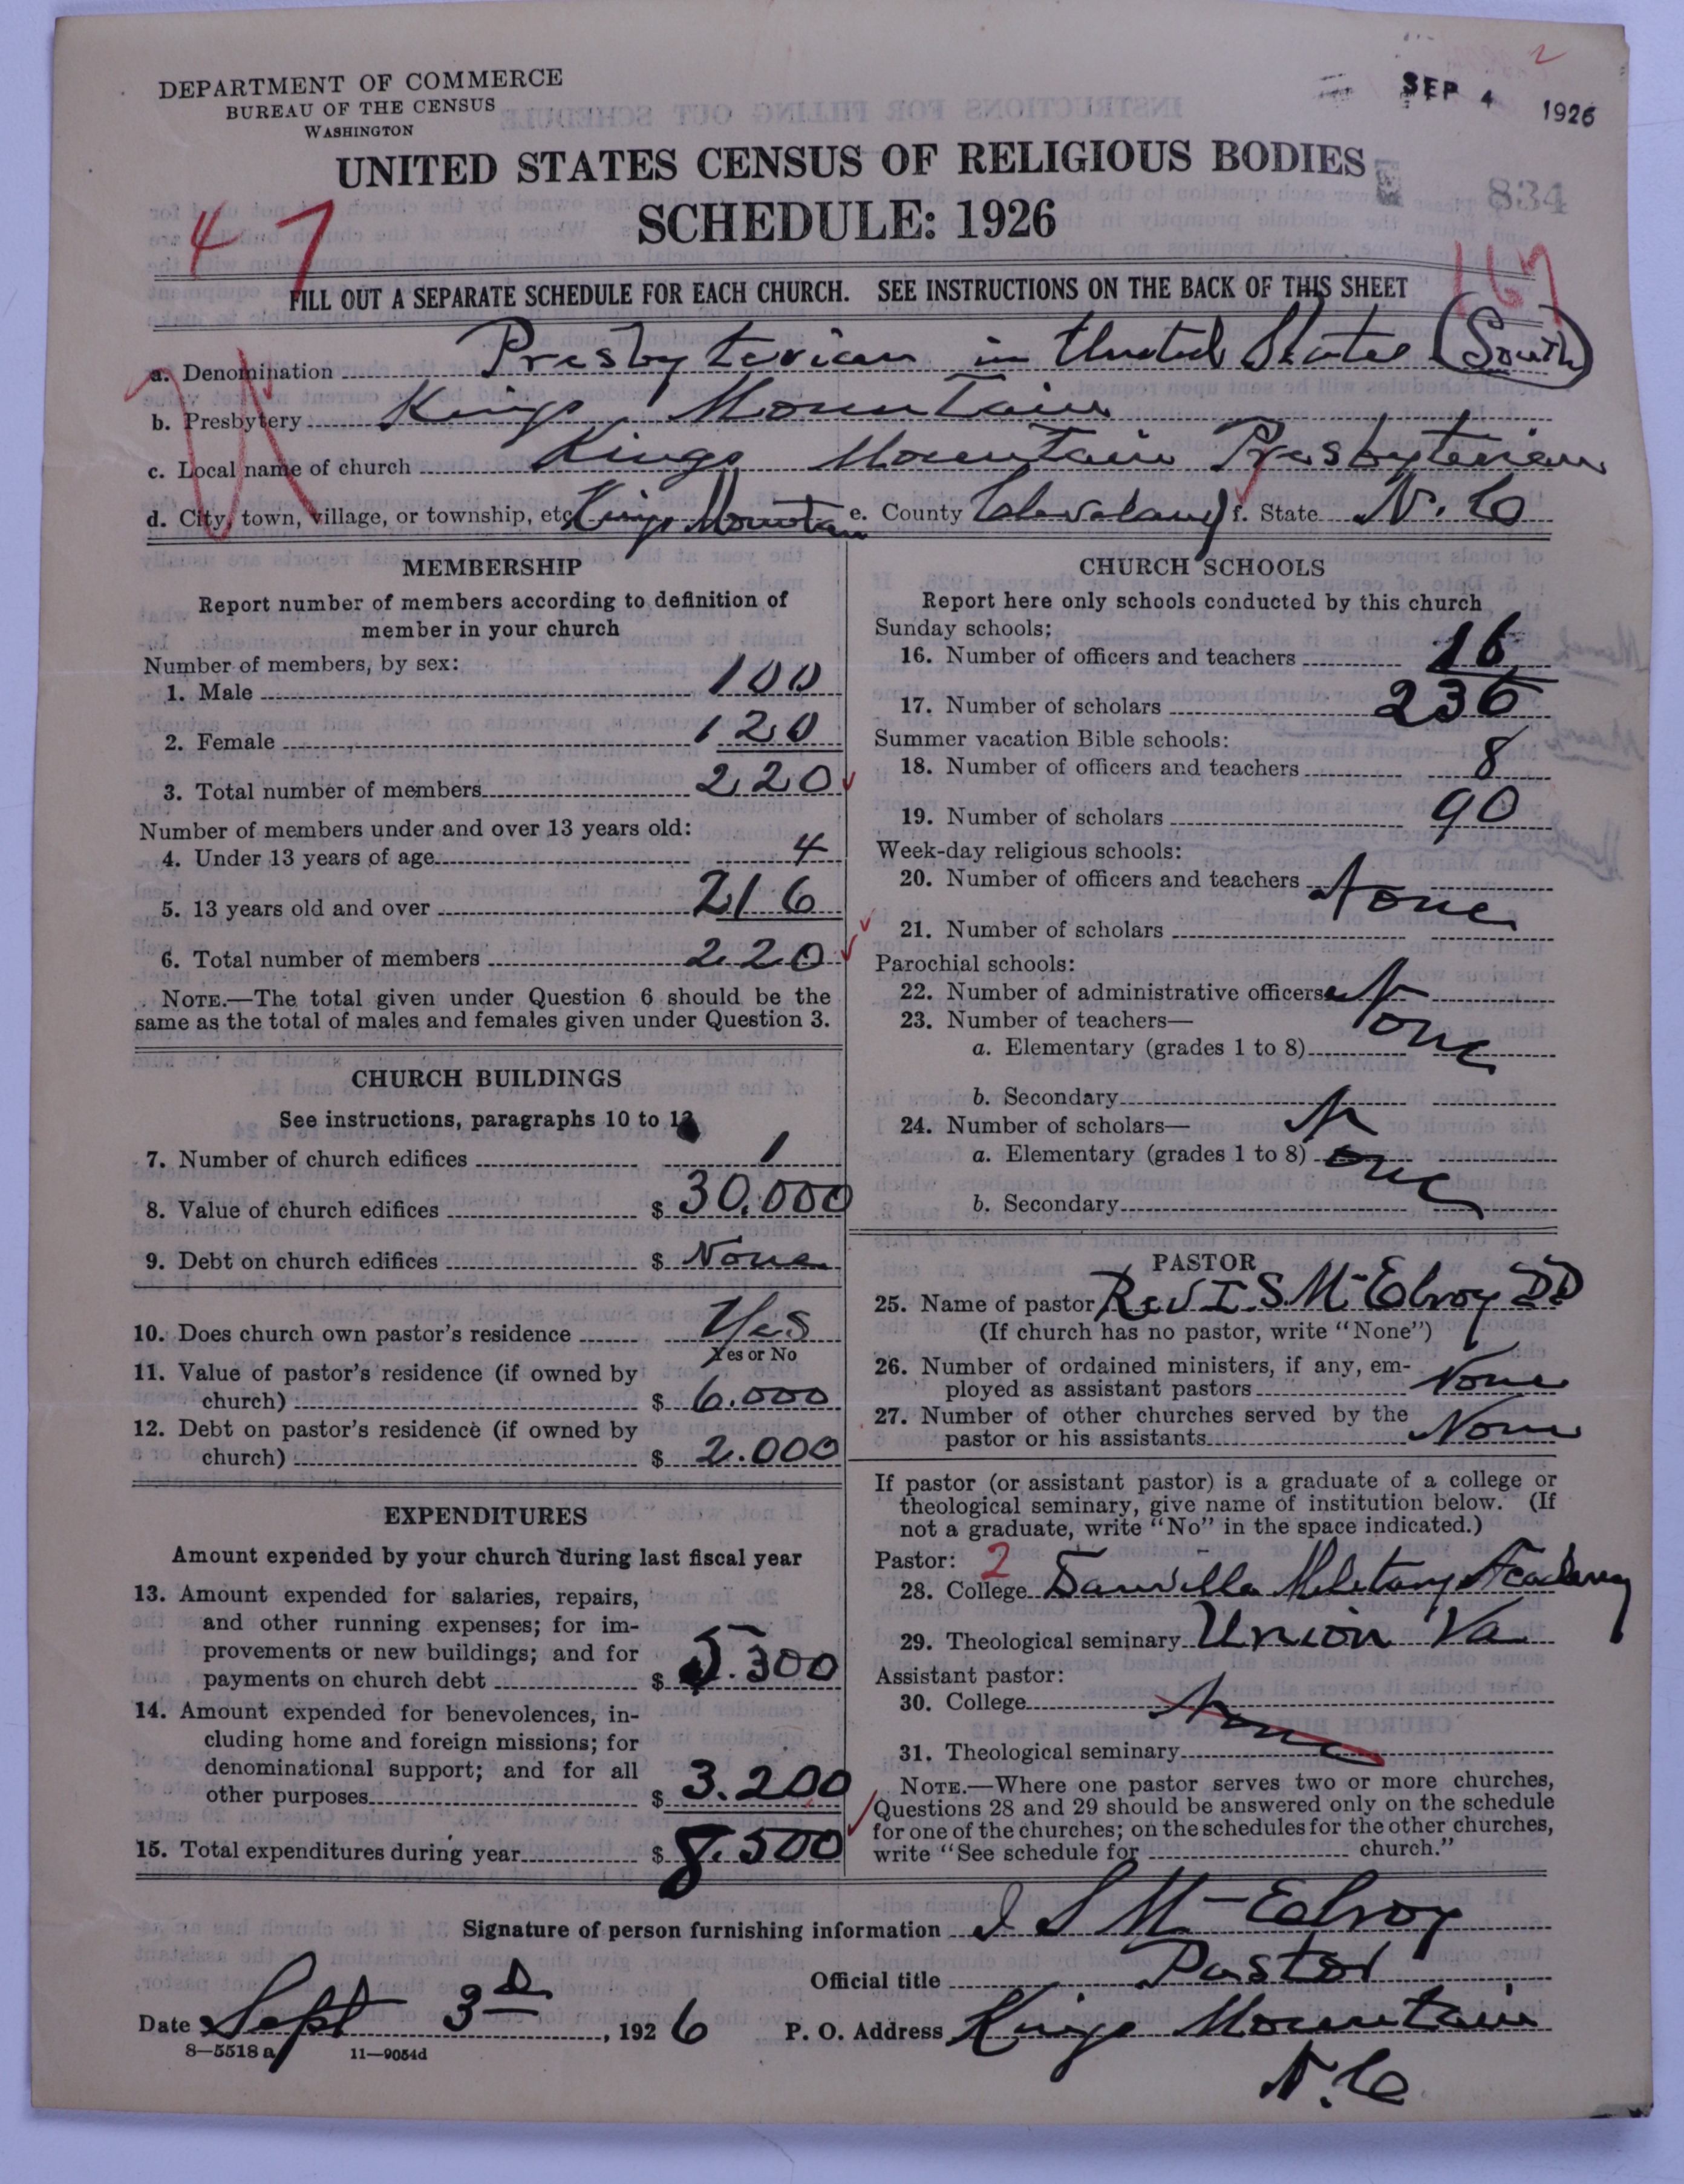 DEPARTMENT OF COMMERCE
BUREAU OF THE CENSUS
WASHINGTON
SEP 4 1926
2
UNITED STATES CENSUS OF RELIGIOUS BODIES
SCHEDULE: 1926
834
47
167
FILL OUT A SEPARATE SCHEDULE FOR EACH CHURCH. SEE INSTRUCTIONS ON THE BACK OF THIS SHEET
a. Denomination Presbyterian in United States (South)
b. Presbytery Kings Mountain
c. Local name of church Kings Mountain Presbyterian
d. City, town, village, or township, etc. Kings Mountain e. County Cleveland f. State N. C
MEMBERSHIP
Report number of members according to definition of
member in your church
Number of members, by sex:
1. Male 100
2. Female 120
3. Total number of members 220
Number of members under and over 13 years old:
4. Under 13 years of age 4
5. 13 years old and over 216
6. Total number of members 220
NOTE.—The total given under Question 6 should be the
same as the total of males and females given under Question 3.
CHURCH BUILDINGS
See instructions, paragraphs 10 to 12
7. Number of church edifices 1
8. Value of church edifices $ 30.000
9. Debt on church edifices $ None
10. Does church own pastor's residence Yes
Yes or No
11. Value of pastor's residence (if owned by
church) $ 6.000
12. Debt on pastor's residence (if owned by
church) $ 2.000
EXPENDITURES
Amount expended by your church during last fiscal year
13. Amount expended for salaries, repairs,
and other running expenses; for im-
provements or new buildings; and for
payments on church debt $ 5.300
14. Amount expended for benevolences, in-
cluding home and foreign missions; for
denominational support; and for all
other purposes $ 3.200
15. Total expenditures during year $ 8.500
CHURCH SCHOOLS
Report here only schools conducted by this church
Sunday schools:
16. Number of officers and teachers 16
17. Number of scholars 236
Summer vacation Bible schools:
18. Number of officers and teachers 8
19. Number of scholars 90
Week-day religious schools:
20. Number of officers and teachers None
21. Number of scholars
Parochial schools:
22. Number of administrative officers None
23. Number of teachers—
a. Elementary (grades 1 to 8)
b. Secondary
24. Number of scholars— None
a. Elementary (grades 1 to 8)
b. Secondary
PASTOR
25. Name of pastor Rev I. S. Mc Elroy DD
(If church has no pastor, write "None")
26. Number of ordained ministers, if any, em-
ployed as assistant pastors None
27. Number of other churches served by the
pastor or his assistants None
If pastor (or assistant pastor) is a graduate of a college or
theological seminary, give name of institution below. (If
not a graduate, write "No" in the space indicated.)
Pastor: 2
28. College Danville Military Academy
29. Theological seminary Union Va
Assistant pastor:
30. College None
31. Theological seminary
NOTE.—Where one pastor serves two or more churches,
Questions 28 and 29 should be answered only on the schedule
for one of the churches; on the schedules for the other churches,
write "See schedule for church."
Signature of person furnishing information I S Mc Elroy
Official title Pastor
Date Sept 3d, 1926 P. O. Address Kings Mountain
N. C
8—5518 a 11—9054d